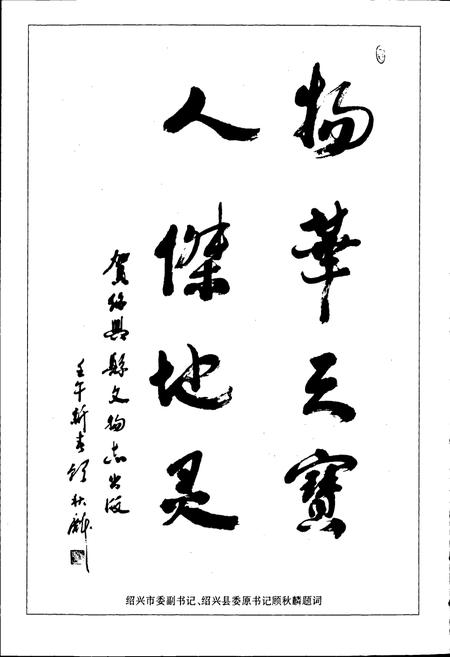 物華天寶
人傑地灵
賀绍興縣文物志出版
壬午新春顾秋麟
绍兴市委副书记、绍兴县委原书记顾秋麟题词